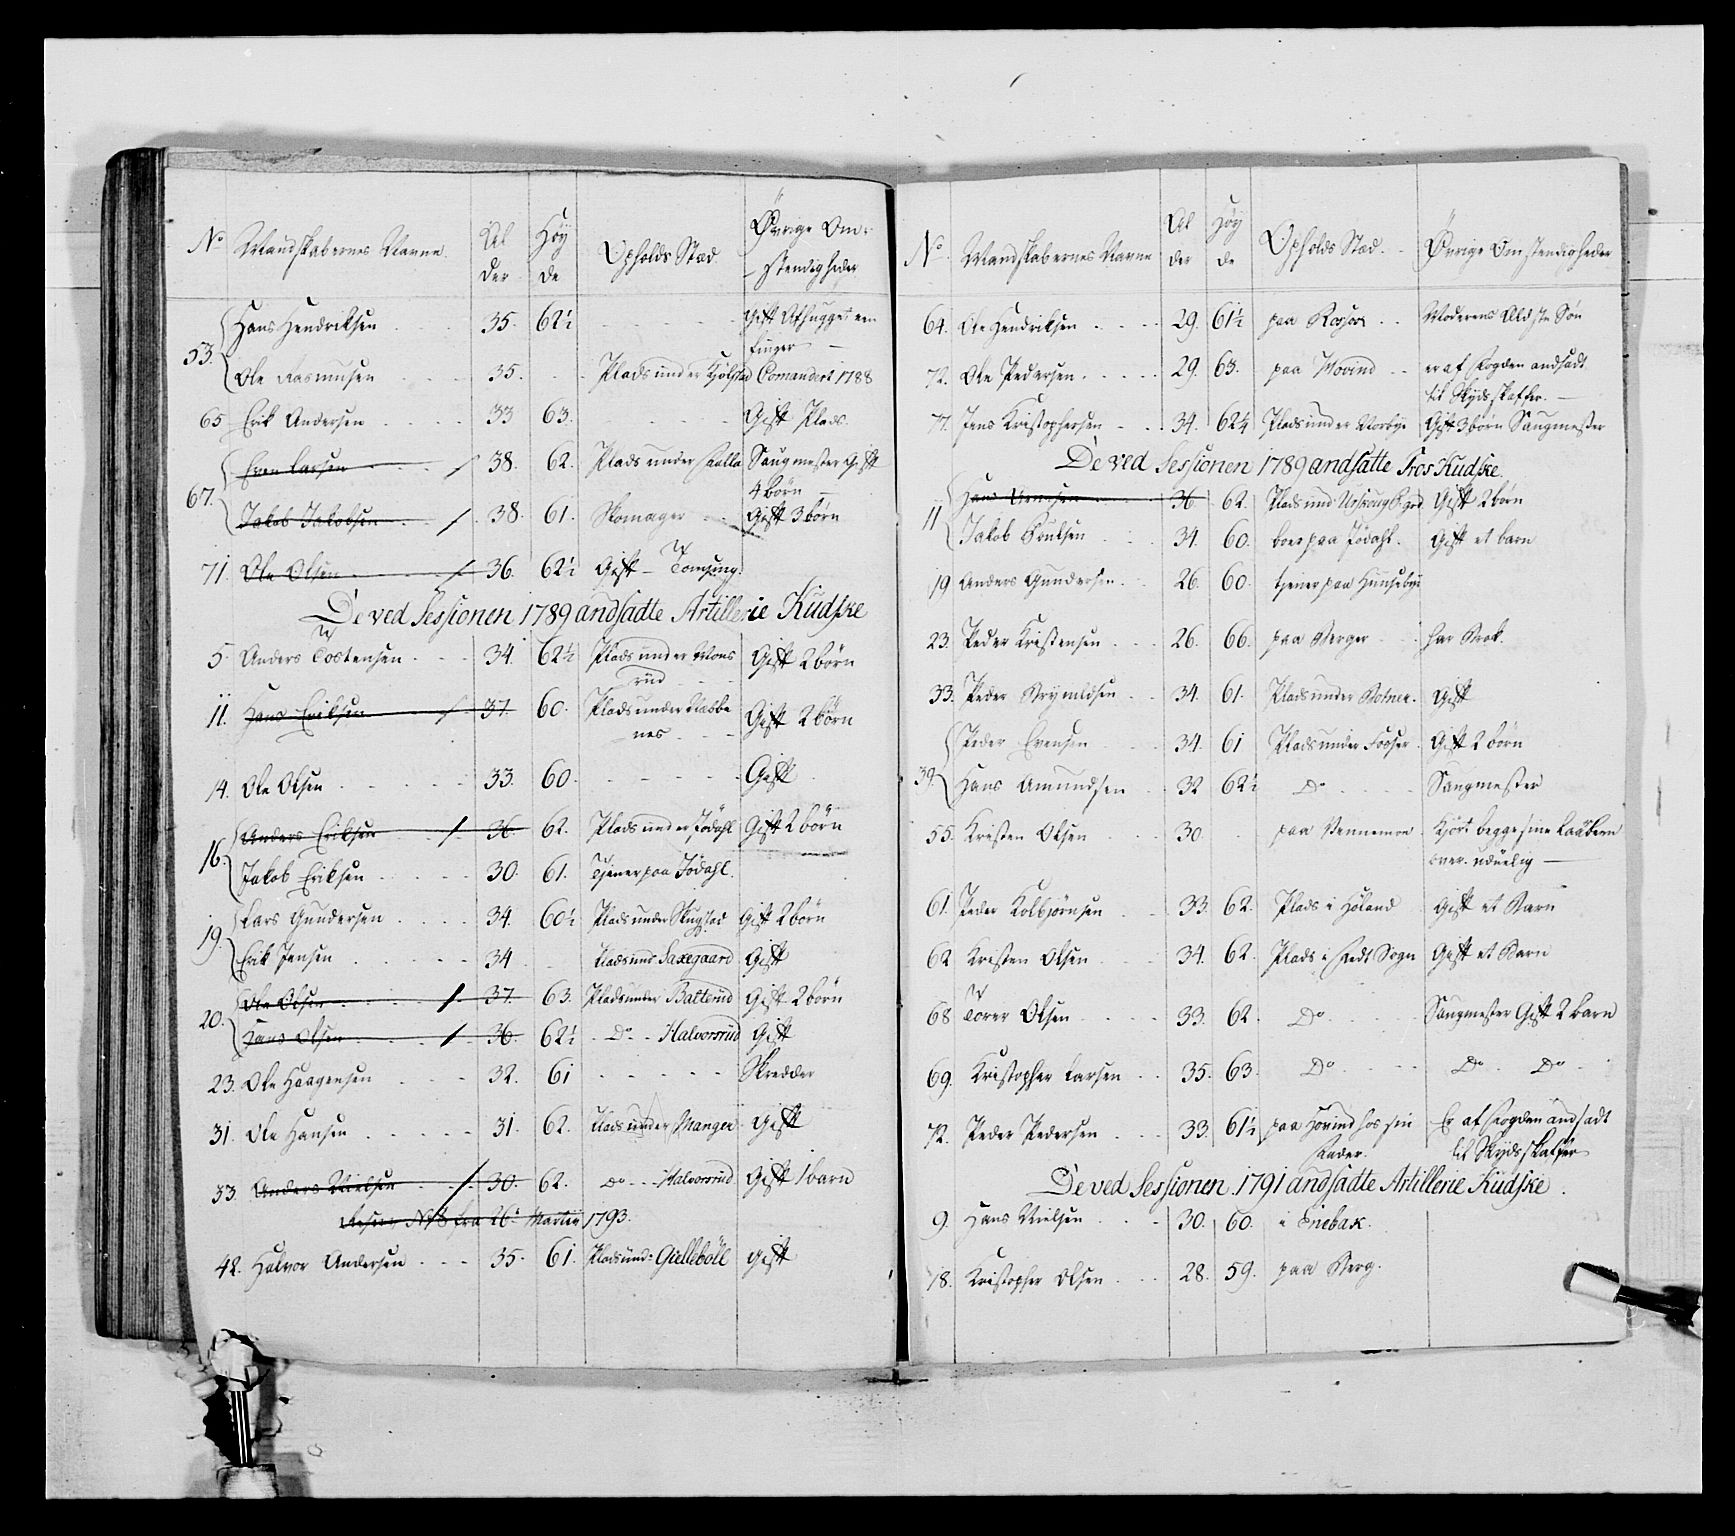 No Mandskabernes Navne Al der Høy de Opholds Stæd Øvrige Om: stændigheder
53. Hans Hendriksen 35. 62½ Gift Afhugget een finger
Ole Rasmusen 35. Plads under Kjølstad Comandert 1788
65 Erik Andersen 33 63. Gift Plads.
67. Even Larsen 38. 62. Plads under Saugmester Gift 4 børn
Jakob Jakobsen 38. 61. Skomager Gift 3 børn
71. Ole Olsen 36. 62½ Gift
De ved Sessionen 1789 andsadte Artillerie Kudske
5. Anders Tostensen 34. 62½ Plads under Mons rud Gift 2 børn
11. Hans Eriksen 37. 60. Plads under Nabbe nes Gift 2 børn
14. Ole Olsen 33. 60. Gift
16. Anders Eriksen 36. 62. Plads under Jødahl Gift 2 børn
Jakob Eriksen 30. 61. Tjener paa Jødahl.
19. Lars Gundersen 34. 60½ Plads under Skugstad Gift 2 børn
Erik Jensen 34 Plads und Saxegaard Gift
20. Ole Olsen 37. 63. Plads under Batterud Gift 2 børn
Hans Olsen 36. 62½ Do Halvorsrud Gift
23. Ole Haagensen 32. 61 Skredder
31. Ole Hansen 31. 62. Plads under Manger Gift
33. Anders Nielsen 30. 62. Do Halvorsrud Gift 1 barn
No 8 fra 26 Martii 1793.
42. Halvor Andersen 35. 61. Plads und: Giellebøll Gift
No Mandskabernes Navne Al der Høy de Opholds Stæd. Øvrige Omstendigheder
64. Ole Hendriksen 29. 61½ paa Moderens Aldste Søn
72. Ole Pedersen 29. 63. paa Hovind er af Fogden andsadt til Skydsskaffer.
77. Jens Kristophersen 34. 62¼ Plads under Norbye Gift 3 børn Saugmester
De ved Sessionen 1789 andsatte Tros Kudske
11 Hans 36 62. Plads und Urskoug Pgrd Gift 2 børn
Jakob Knutsen 34. 60. boer paa Jødahl. Gift et barn
19 Anders Gundersen 26. 60. tjener paa Hunsebye
23. Peder Kristensen 26. 66. paa Berger har Brok.
33. Peder Brynildsen 34. 61. Plads under Botner. Gift
39. Peder Evensen 34. 61 Plads under Fosser Gift 2 børn
Hans Amundsen 32 62½ Do Saugmester
55. Kristen Olsen 30. paa Vennemoe Kjørt begge sine Laarbeen over. uduelig
61. Peder Kolbjørnsen 33. 62. Plads i Høland Gift et Barn
62 Kristen Olsen 34. 62. Plads i Fedt Sogn Gift et Barn
68 Torer Olsen 33. 62. Do Saugmester Gift 2 barn
69. Kristopher Larsen 35. 63. Do Do Do
72. Peder Pedersen 33. 61½ paa Hovind hos sin Fader. Er af Fogden andsadt til Skydsskaffer
De ved Sessionen 1791 andsadte Artillerie Kudske.
9. Hans Nielsen 30. 60. i Enebak.
18. Kristopher Olsen 28. 59. paa Berg.